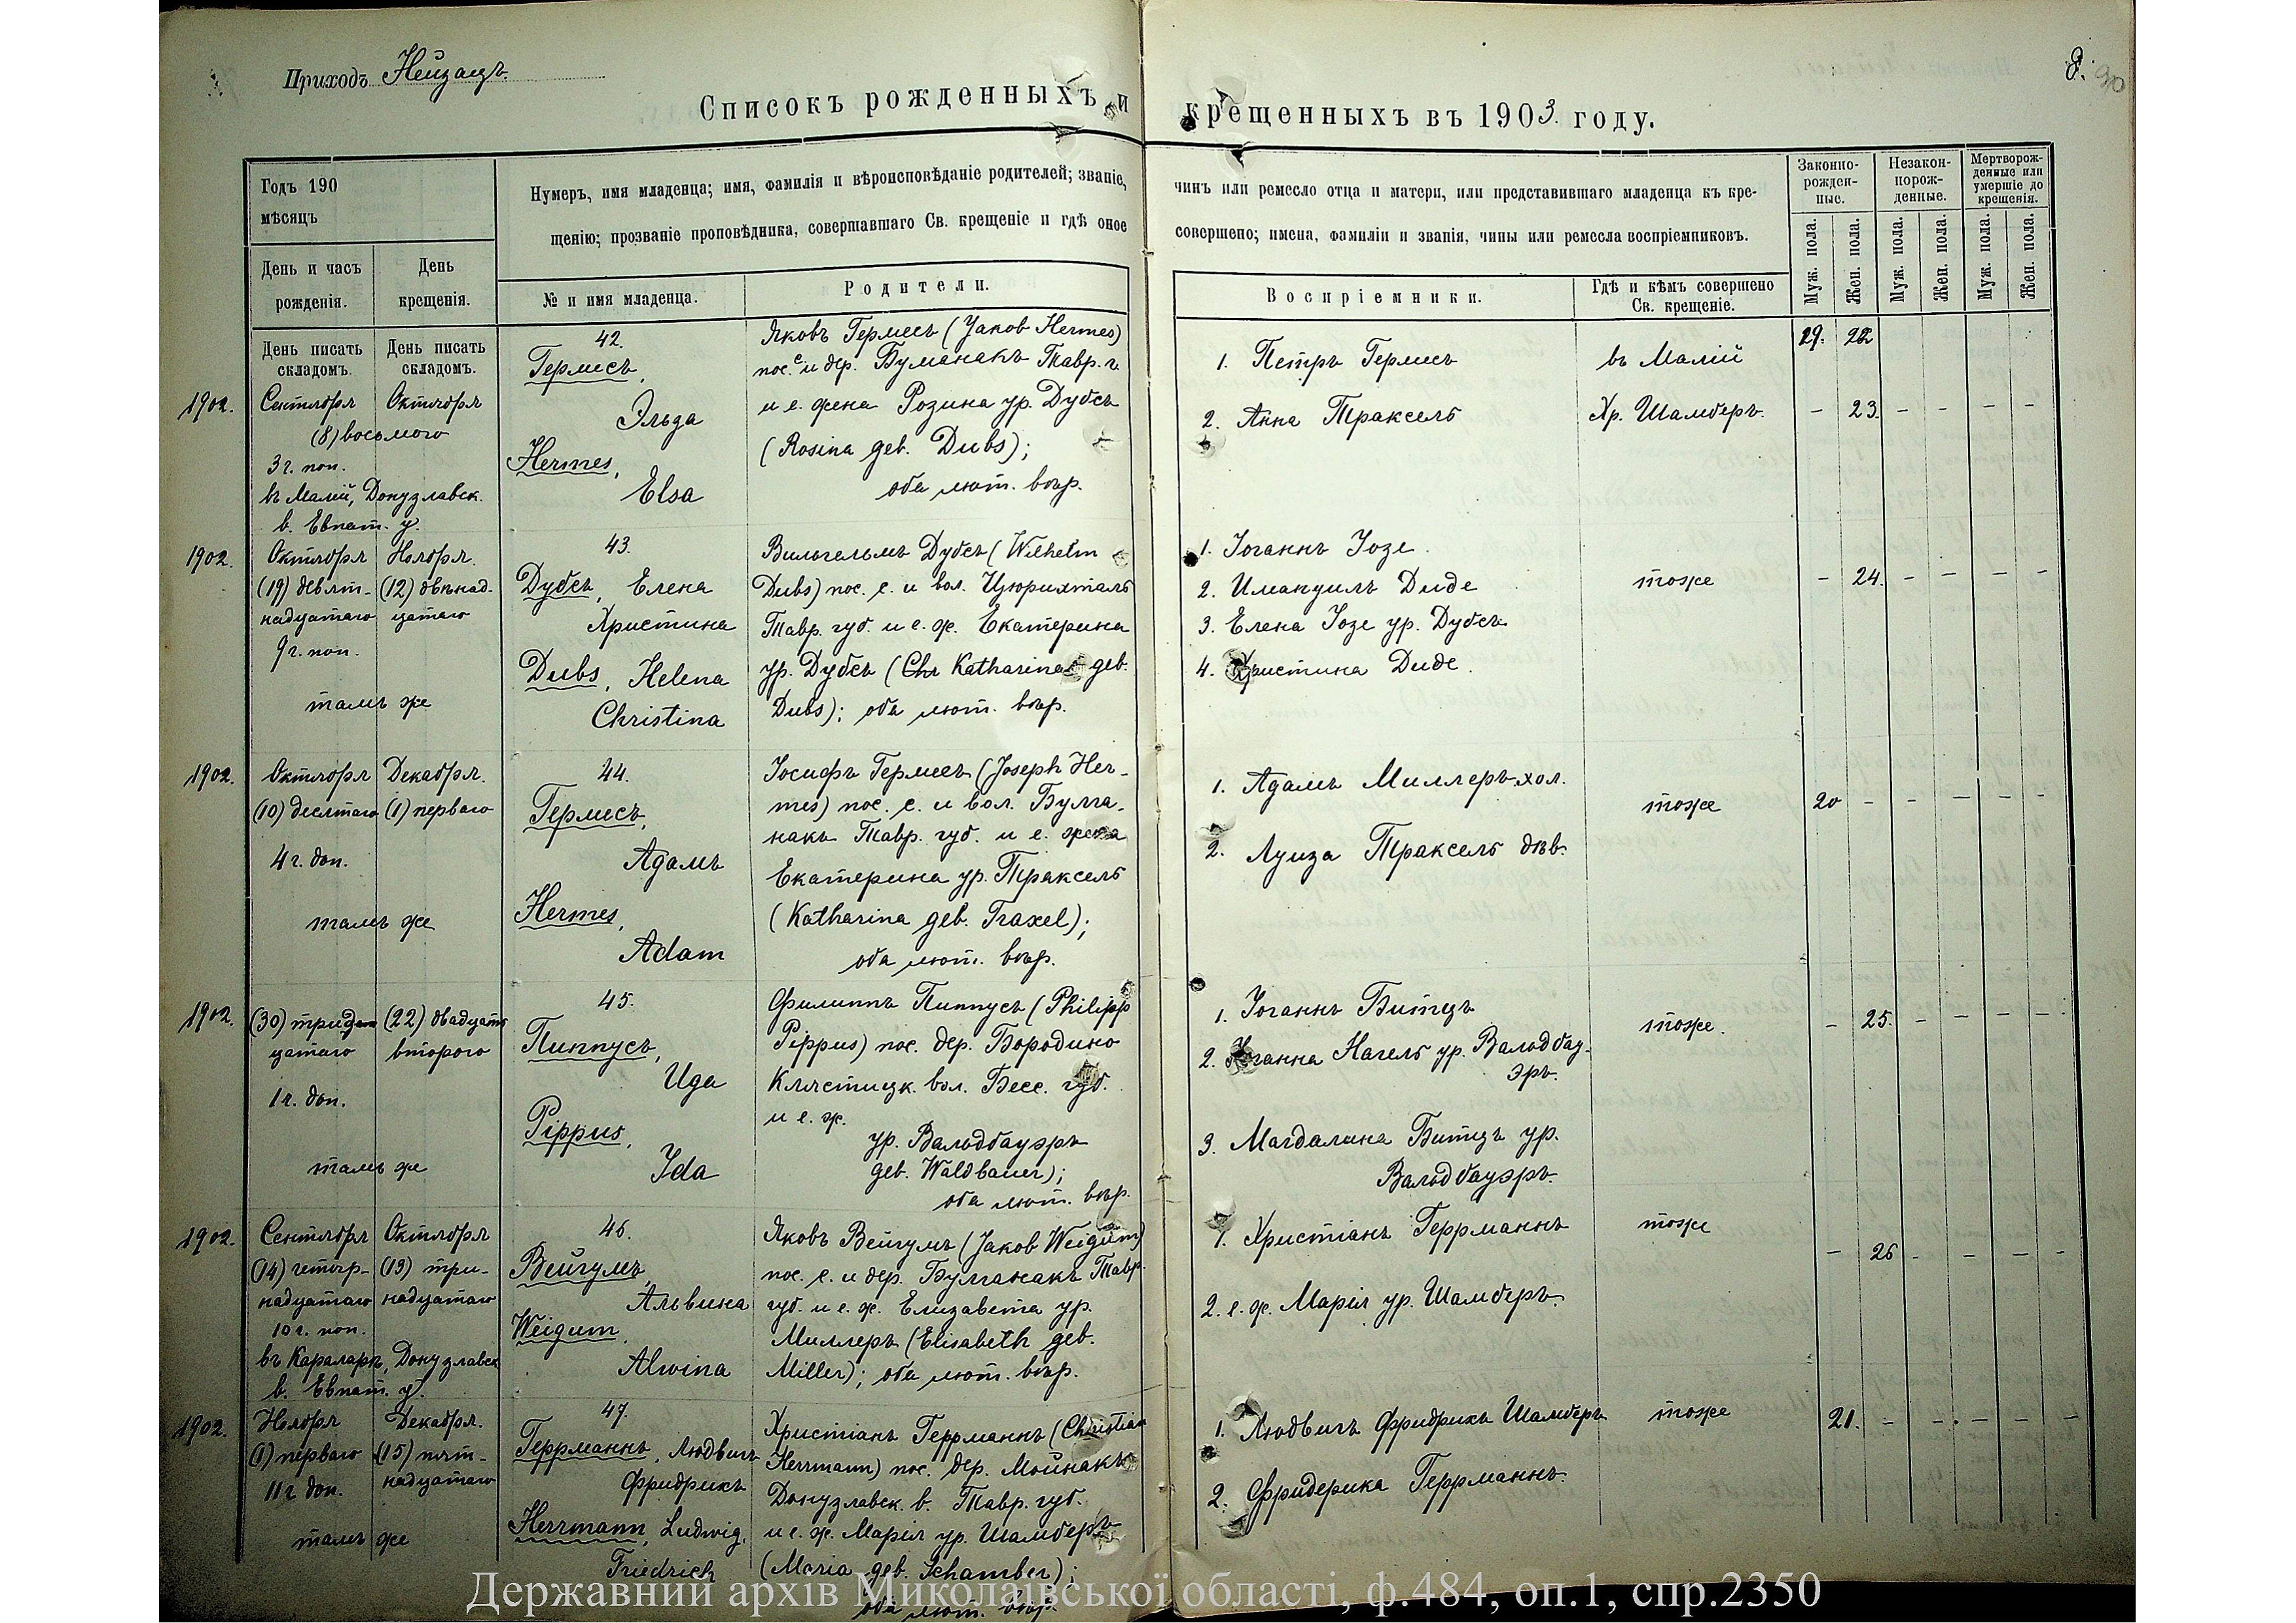 Приходъ Нейзацъ.
8.
90
Списокъ рожденныхъ и крещенныхъ въ 1903. году.
Годъ 190
мѣсяцъ
День и часъ
рожденія.
День
крещенія.
Нумеръ, имя младенца; имя, фамилія и вѣроисповѣданіе родителей; званіе, чинъ или ремесло отца и матери, или представившаго младенца къ кре-
щенію; прозваніе проповѣдника, совершавшаго Св. крещеніе и гдѣ оное совершено; имена, фамиліи и званія, чины или ремесла воспріемниковъ.
№ и имя младенца.
Родители.
Воспріемники.
Гдѣ и кѣмъ совершено
Св. крещеніе.
Законно-
рожден-
ные.
Незакон-
норож-
денные.
Мертворож-
денные или
умершіе до
крещенія.
Муж. пола.
Жен. пола.
Муж. пола.
Жен. пола.
Муж. пола.
Жен. пола.
День писать
складомъ.
День писать
складомъ.
19. 22
1902.
Сентября
(8) восьмого
3 ч. поп.
въ Малій, Донузлавск.
в. Евпат. у.
Октября
42.
Гермесъ,
Эльза
Hermes,
Elsa
Яковъ Гермесъ (Jakob Hermes)
пос. с. и дер. Булганакъ Тавр. г.
и е. жена Розина ур. Дубсъ
(Rosina geb. Dubs);
оба лют. вѣр.
1. Петръ Гермесъ
2. Анна Траксель
въ Малій
Хр. Шамберъ.
– 23. – – – –
1902.
Октября
(19) девят-
надцатаго
9 ч. поп.
тамъ же
Ноября.
(12) двѣнад-
цатаго
43.
Дубсъ, Елена
Христина
Dubs, Helena
Christina
Вильгельмъ Дубсъ (Wilhelm
Dubs) пос. с. и вол. Цюрихталь
Тавр. губ. и е. ж. Екатерина
ур. Дубсъ (Katharina geb.
Dubs); оба лют. вѣр.
1. Іоганнъ Іозе.
2. Имануилъ Диде
3. Елена Іозе ур. Дубсъ
4. Христина Диде.
тоже
– 24. – – – –
1902.
Октября
(10) десятаго
4 ч. доп.
тамъ же
Декабря.
(1) перваго
44.
Гермесъ,
Адамъ
Hermes,
Adam
Іосифъ Гермесъ (Joseph Her-
mes) пос. с. и вол. Булга-
накъ Тавр. губ. и е. жена
Екатерина ур. Траксель
(Katharina geb. Traxel);
оба лют. вѣр.
1. Адамъ Миллеръ хол.
2. Луиза Траксель дѣв.
тоже
20 – – – – –
1902.
(30) тридцатаго
1 ч. доп.
тамъ же
(22) двадцать
второго
45.
Пиппусъ,
Ида
Pippus,
Ida
Филиппъ Пиппусъ (Philipp
Pippus) пос. дер. Бородино
Клястицк. вол. Бесс. губ.
и е. ж.
ур. Вальдбауэръ
geb. Waldbauer);
оба лют. вѣр.
1. Іоганнъ Битцъ
2. Іоганна Нагель ур. Вальдбау-
эръ.
3. Магдалина Битцъ ур.
Вальдбауэръ.
тоже.
– 25. – – – –
1902.
Сентября
(14) четыр-
надцатаго
10 ч. поп.
въ Караларъ, Донузлавск
в. Евпат. у.
Октября
(13) три-
надцатаго
46.
Вейгумъ,
Альвина
Weigum,
Alwina
Яковъ Вейгумъ (Jakob Weigum)
пос. с. и дер. Булганакъ Тавр.
губ. и е. ж. Елизавета ур.
Миллеръ (Elisabeth geb.
Miller); оба лют. вѣр.
1. Христіанъ Геррманнъ
2. е. ж. Марія ур. Шамберъ.
тоже
– 26 – – – –
1902.
Ноября
(1) перваго
11 ч. доп.
тамъ же
Декабря.
(15) пят-
надцатаго
47.
Геррманнъ, Людвигъ
Фридрихъ
Herrmann, Ludwig,
Friedrich
Христіанъ Геррманнъ (Christian
Herrmann) пос. дер. Мойнакъ
Донузлавск. в. Тавр. губ.
и е. ж. Марія ур. Шамберъ
(Maria geb. Schamber);
оба лют. вѣр.
1. Людвигъ Фридрихъ Шамберъ
2. Фридерика Геррманнъ.
тоже
21. – – – – –
Державний архів Миколаївської області, ф.484, оп.1, спр.2350